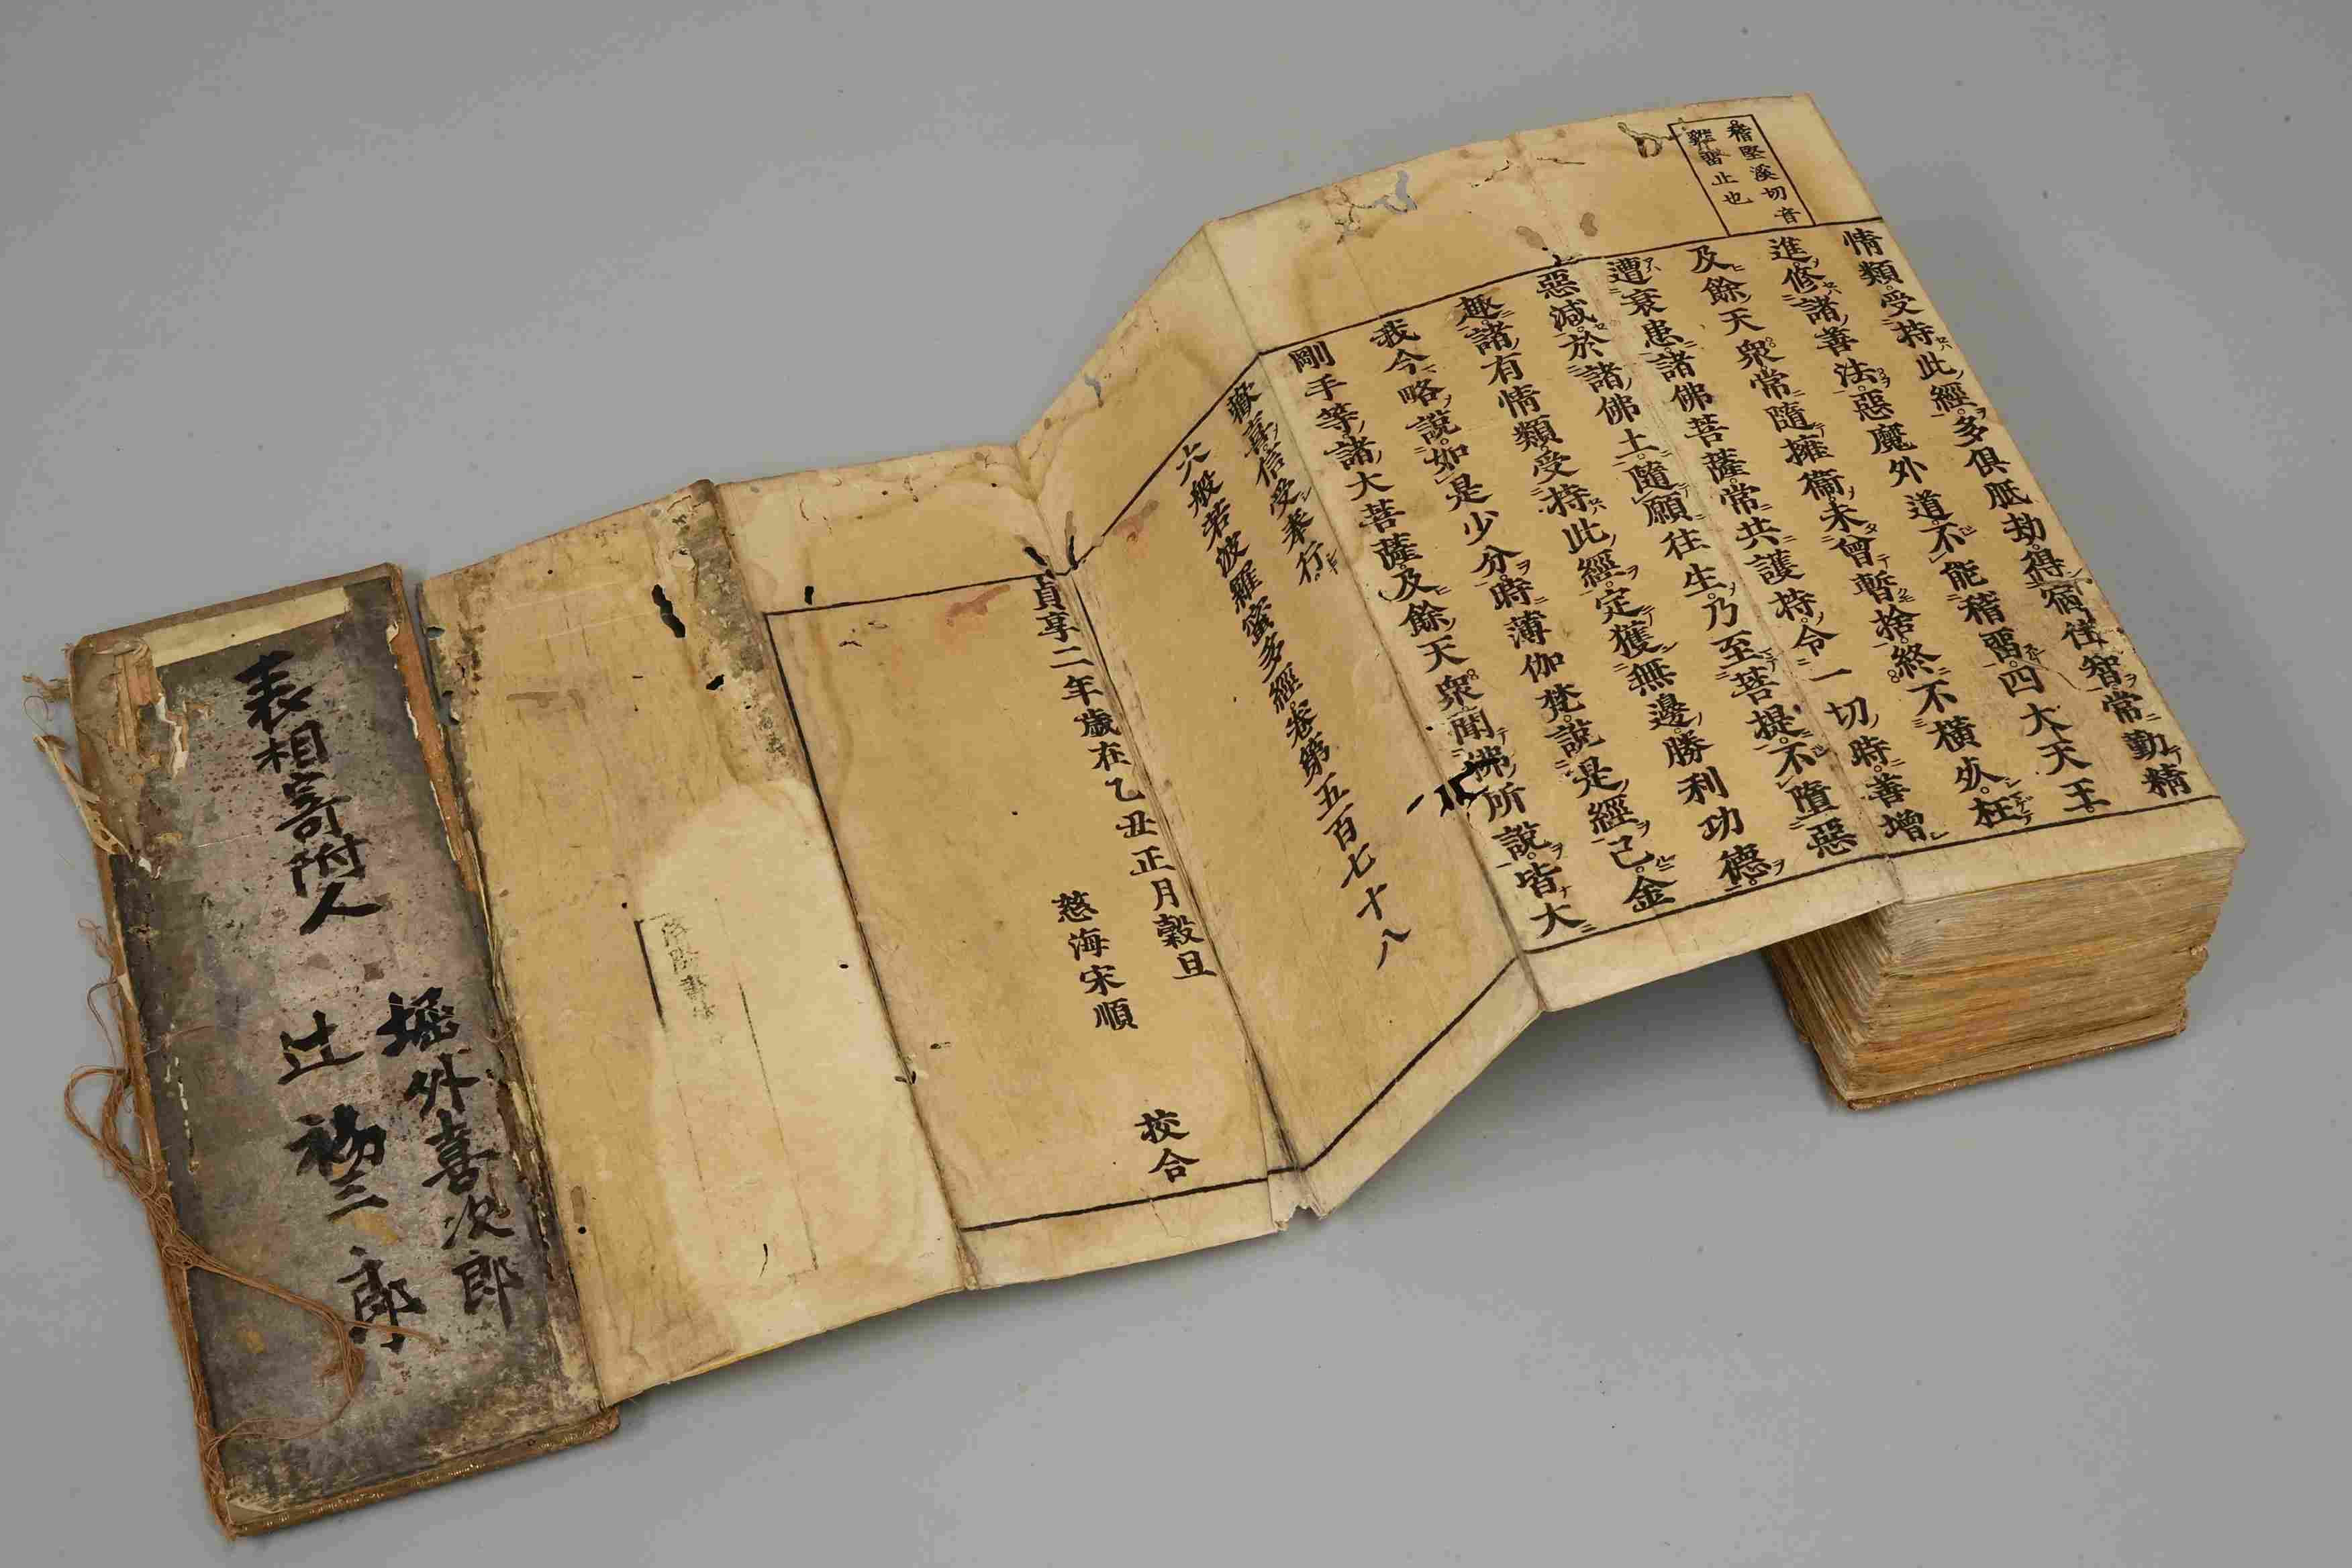 稽堅溪切音
雞畱止也
情類受持此經多俱胝劫得宿住智常勤精
進修諸善法惡魔外道不能稽畱四大天王
及餘天衆常隨擁衞未曾暫捨終不橫夭枉
遭衰患諸佛菩薩常共護持令一切時善增
惡減於諸佛土隨願往生乃至菩提不墮惡
趣諸有情類受持此經定獲無邊勝利功德
我今略說如是少分時薄伽梵說是經已金
剛手等諸大菩薩及餘天衆聞佛所說皆大
歡喜信受奉行
大般若波羅蜜多經卷第五百七十八
貞享二年歲在乙丑正月穀旦
慈海宋順
校合
表相寄附人
堀外喜次郎
辻
三郎